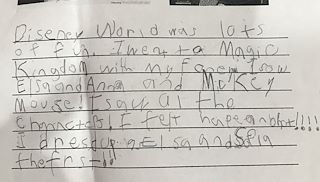 Diseney World was lots
of fun. I went to Magic
Kingdom with my Family from
Elsa and Anna and Mickey
Mouse! I saw al the
Chanactors! I felt
I dresup as Elsa and Sofia
the frst!!